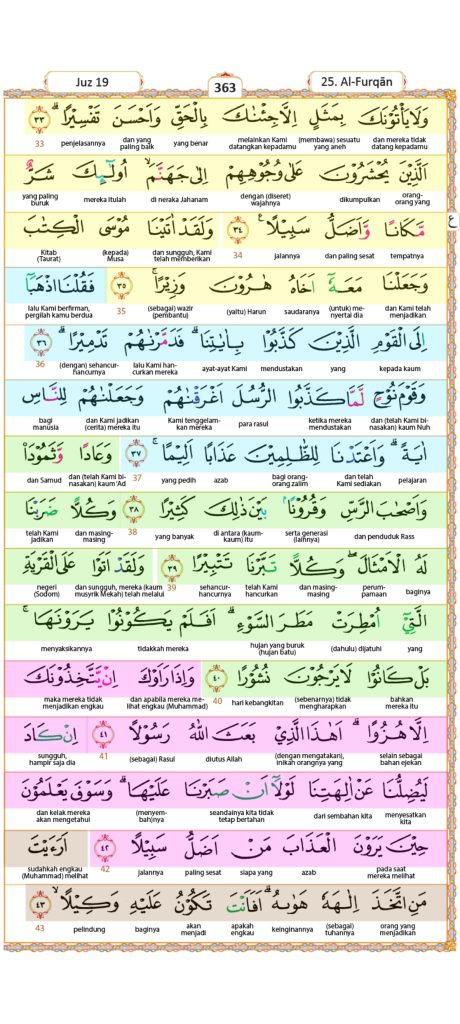 Juz 19
363
25. Al-Furqān
وَلَا يَأْتُوْنَكَ بِمَثَلٍ اِلَّا جِئْنٰكَ بِالْحَقِّ وَاَحْسَنَ تَفْسِيْرًاۗ ٣٣
dan mereka tidak datang kepadamu (membawa) sesuatu yang aneh melainkan Kami datangkan kepadamu yang benar dan yang paling baik penjelasannya 33
اَلَّذِيْنَ يُحْشَرُوْنَ عَلٰى وُجُوْهِهِمْ اِلٰى جَهَنَّمَۙ اُولٰۤىِٕكَ شَرٌّ
orang-orang yang dikumpulkan dengan (diseret) wajahnya di neraka Jahanam mereka itulah yang paling buruk
ع
مَّكَانًا وَّاَضَلُّ سَبِيْلًا ࣖ ٣٤ وَلَقَدْ اٰتَيْنَا مُوْسَى الْكِتٰبَ
tempatnya dan paling sesat jalannya 34 dan sungguh, Kami telah memberikan (kepada) Musa Kitab (Taurat)
وَجَعَلْنَا مَعَهٗٓ اَخَاهُ هٰرُوْنَ وَزِيْرًاۚ ٣٥ فَقُلْنَا اذْهَبَآ
dan Kami telah menjadikan (untuk) me-nyertai dia saudaranya (yaitu) Harun (sebagai) wazir (pembantu) 35 lalu Kami berfirman, pergilah kamu berdua
اِلَى الْقَوْمِ الَّذِيْنَ كَذَّبُوْا بِاٰيٰتِنَاۗ فَدَمَّرْنٰهُمْ تَدْمِيْرًاۗ ٣٦
kepada kaum yang mendustakan ayat-ayat Kami lalu Kami han-curkan mereka (dengan) sehancur-hancurnya 36
وَقَوْمَ نُوْحٍ لَّمَّا كَذَّبُوا الرُّسُلَ اَغْرَقْنٰهُمْ وَجَعَلْنٰهُمْ لِلنَّاسِ
dan (telah Kami bi-nasakan) kaum Nuh ketika mereka mendustakan para rasul Kami tenggelam-kan mereka dan Kami jadikan (cerita) mereka itu bagi manusia
اٰيَةًۗ وَاَعْتَدْنَا لِلظّٰلِمِيْنَ عَذَابًا اَلِيْمًاۚ ٣٧ وَعَادًا وَّثَمُوْدَا۟
pelajaran dan telah Kami sediakan bagi orang-orang zalim azab yang pedih 37 dan (telah Kami bi-nasakan) kaum 'Ad dan Samud
وَاَصْحٰبَ الرَّسِّ وَقُرُوْنًاۢ بَيْنَ ذٰلِكَ كَثِيْرًا ٣٨ وَكُلًّا ضَرَبْنَا
dan penduduk Rass serta generasi (lainnya) di antara (kaum-kaum) itu yang banyak 38 dan masing-masing telah Kami jadikan
لَهُ الْاَمْثَالَۖ وَكُلًّا تَبَّرْنَا تَتْبِيْرًا ٣٩ وَلَقَدْ اَتَوْا عَلَى الْقَرْيَةِ
baginya perum-pamaan dan masing-masing telah Kami hancurkan sehancur-hancurnya 39 dan sungguh, mereka (kaum musyrik Mekah) telah melalui negeri (Sodom)
الَّتِيْٓ اُمْطِرَتْ مَطَرَ السَّوْءِۗ اَفَلَمْ يَكُوْنُوْا يَرَوْنَهَاۚ
yang (dahulu) dijatuhi hujan yang buruk (hujan batu) tidakkah mereka menyaksikannya
بَلْ كَانُوْا لَا يَرْجُوْنَ نُشُوْرًا ٤٠ وَاِذَا رَاَوْكَ اِنْ يَّتَّخِذُوْنَكَ
bahkan mereka itu (sebenarnya) tidak mengharapkan hari kebangkitan 40 dan apabila mereka me-lihat engkau (Muhammad) maka mereka tidak menjadikan engkau
اِلَّا هُزُوًاۗ اَهٰذَا الَّذِيْ بَعَثَ اللّٰهُ رَسُوْلًا ٤١ اِنْ كَادَ
selain sebagai bahan ejekan (dengan mengatakan), inikah orangnya yang diutus Allah (sebagai) Rasul 41 sungguh, hampir saja dia
لَيُضِلُّنَا عَنْ اٰلِهَتِنَا لَوْلَآ اَنْ صَبَرْنَا عَلَيْهَاۗ وَسَوْفَ يَعْلَمُوْنَ
menyesatkan kita dari sembahan kita seandainya kita tidak tetap bertahan (menyem-bah)nya dan kelak mereka akan mengetahui
حِيْنَ يَرَوْنَ الْعَذَابَ مَنْ اَضَلُّ سَبِيْلًا ٤٢ اَرَءَيْتَ
pada saat mereka melihat azab siapa yang paling sesat jalannya 42 sudahkah engkau (Muhammad) melihat
مَنِ اتَّخَذَ اِلٰهَهٗ هَوٰىهُۗ اَفَاَنْتَ تَكُوْنُ عَلَيْهِ وَكِيْلًاۙ ٤٣
orang yang menjadikan (sebagai) tuhannya keinginannya apakah engkau akan menjadi baginya pelindung 43